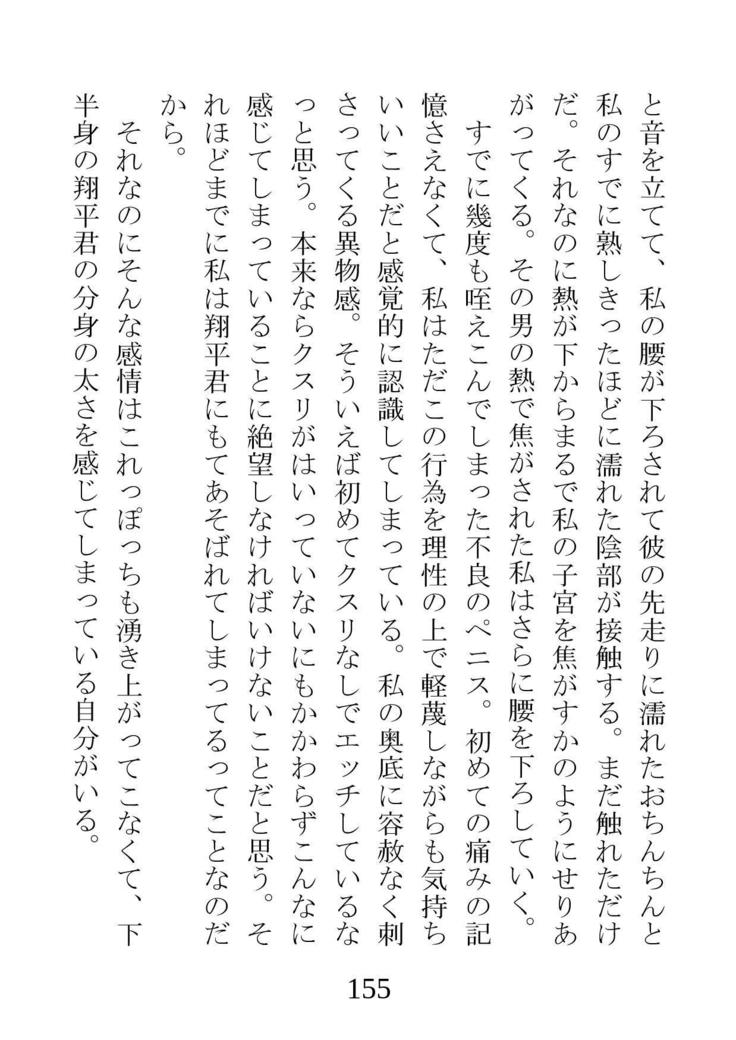 と音を立てて、私の腰が下ろされて彼の先走りに濡れたおちんちんと
私のすでに熟しきったほどに濡れた陰部が接触する。まだ触れただけ
だ。それなのに熱が下からまるで私の子宮を焦がすかのようにせりあ
がってくる。その男の熱で焦がされた私はさらに腰を下ろしていく。
すでに幾度も咥えこんでしまった不良のペニス。初めての痛みの記
憶さえなくて、私はただこの行為を理性の上で軽蔑しながらも気持ち
いいことだと感覚的に認識してしまっている。私の奥底に容赦なく刺
さってくる異物感。そういえば初めてクスリなしでエッチしているな
っと思う。本来ならクスリがはいっていないにもかかわらずこんなに
感じてしまっていることに絶望しなければいけないことだと思う。そ
れほどまでに私は翔平君にもてあそばれてしまってるってことなのだ
から。
それなのにそんな感情はこれっぽっちも湧き上がってこなくて、下
半身の翔平君の分身の太さを感じてしまっている自分がいる。
155